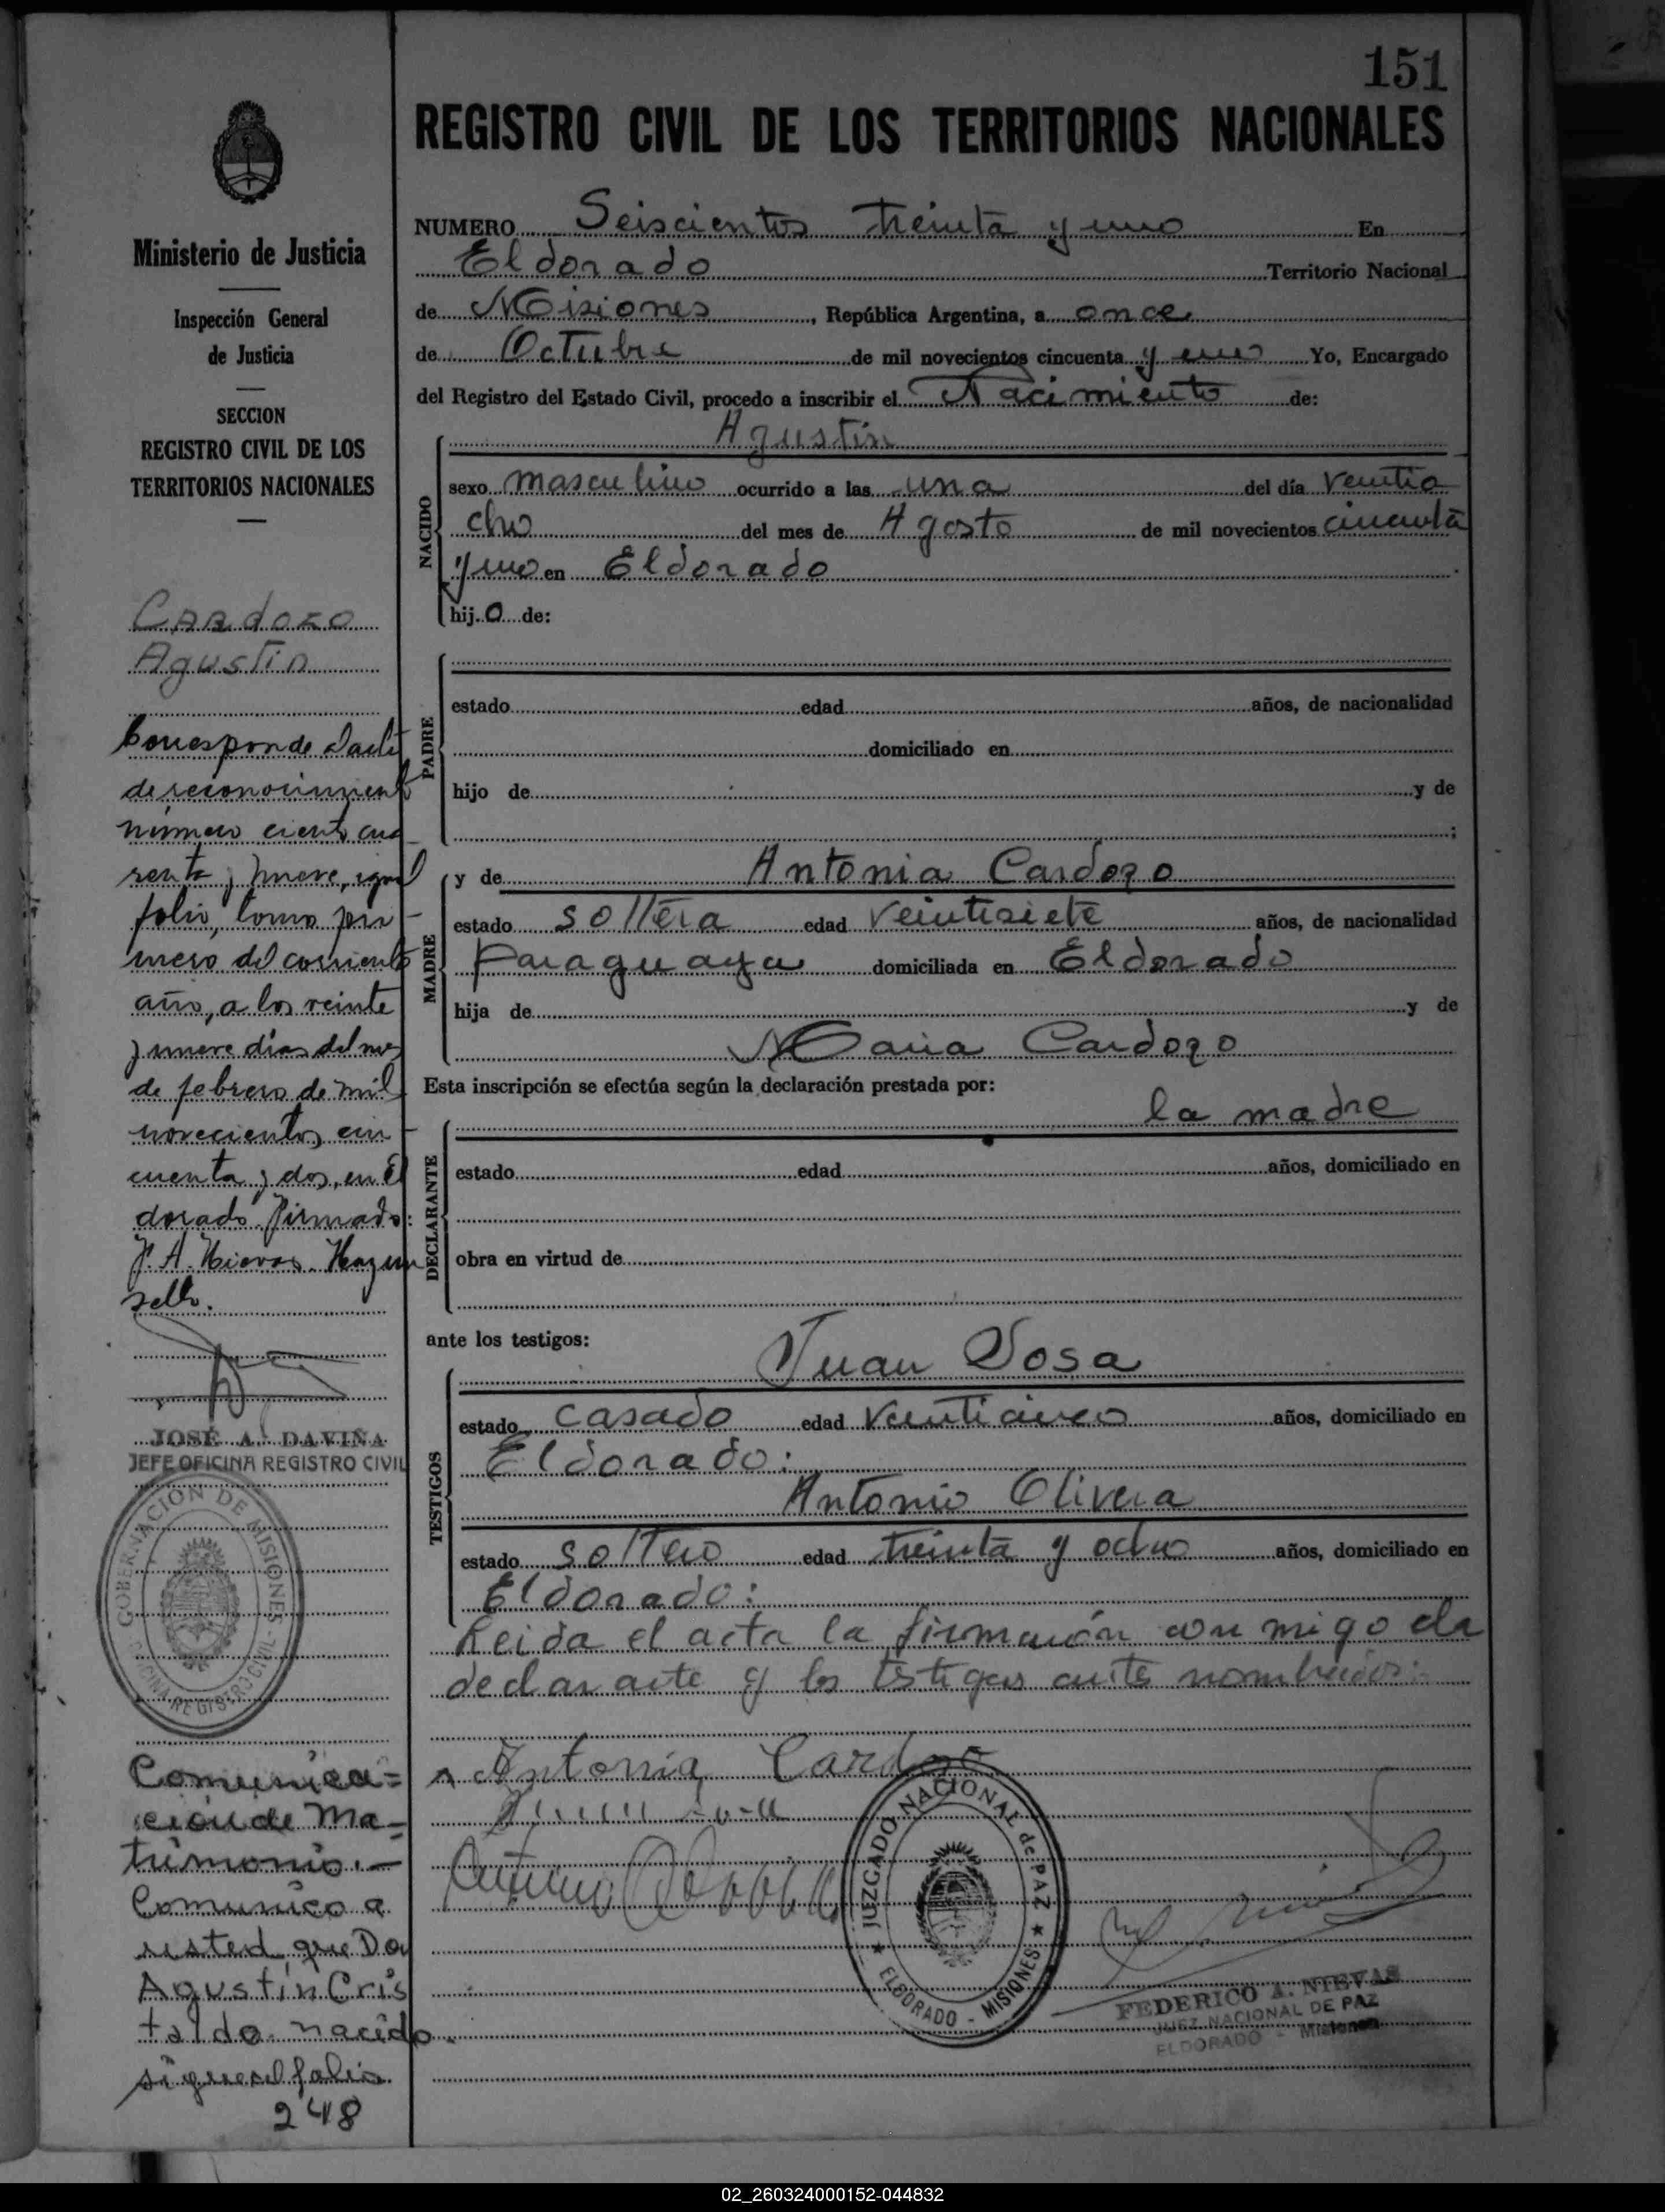 151
REGISTRO CIVIL DE LOS TERRITORIOS NACIONALES
Ministerio de Justicia
Inspección General
de Justicia
SECCION
REGISTRO CIVIL DE LOS
TERRITORIOS NACIONALES
Cardozo
Agustin
Corresponde
de reconocimiento
número ciento cua
renta y nueve, igual
folio, tomo pri-
mero del corriente
año, a los veinte
y nueve dias del mes
de febrero de mil
novecientos cin-
cuenta y dos, en El
dorado. Firmado:
F. A. Nievas.
sello.
JOSÉ A. DAVIÑA
JEFE OFICINA REGISTRO CIVIL
GOBERNACION DE MISIONES
OFICINA REGISTRO CIVIL
Comunica=
ción de Ma-
trimonio.-
Comunico a
usted, que Don
Agustín Cris
taldo. nacido.
sigue al folio
248
NUMERO Seiscientos treinta y uno En
Eldorado Territorio Nacional
de Misiones, República Argentina, a once
de Octubre de mil novecientos cincuenta y uno Yo, Encargado
del Registro del Estado Civil, procedo a inscribir el Nacimiento de:
NACIDO
Agustin
sexo masculino ocurrido a las una del día veintio
cho del mes de Agosto de mil novecientos cincuenta
y uno en Eldorado
hijo de:
PADRE
estado edad años, de nacionalidad
domiciliado en
hijo de y de
;
MADRE
y de Antonia Cardozo
estado soltera edad veintisiete años, de nacionalidad
paraguaya domiciliada en Eldorado
hija de y de
Maria Cardozo
Esta inscripción se efectúa según la declaración prestada por:
DECLARANTE
la madre
estado edad años, domiciliado en
obra en virtud de
ante los testigos:
TESTIGOS
Juan Sosa
estado casado edad veinticinco años, domiciliado en
Eldorado:
Antonio Olivera
estado soltero edad treinta y ocho años, domiciliado en
Eldorado:
Leida el acta la firmarón con migo la
declarante y los testigos ante nombrados:
Antonia Cardozo
JUZGADO NACIONAL de PAZ
★ ELDORADO - MISIONES ★
FEDERICO A. NIEVAS
JUEZ NACIONAL DE PAZ
ELDORADO - Misiones
02_260324000152-044832